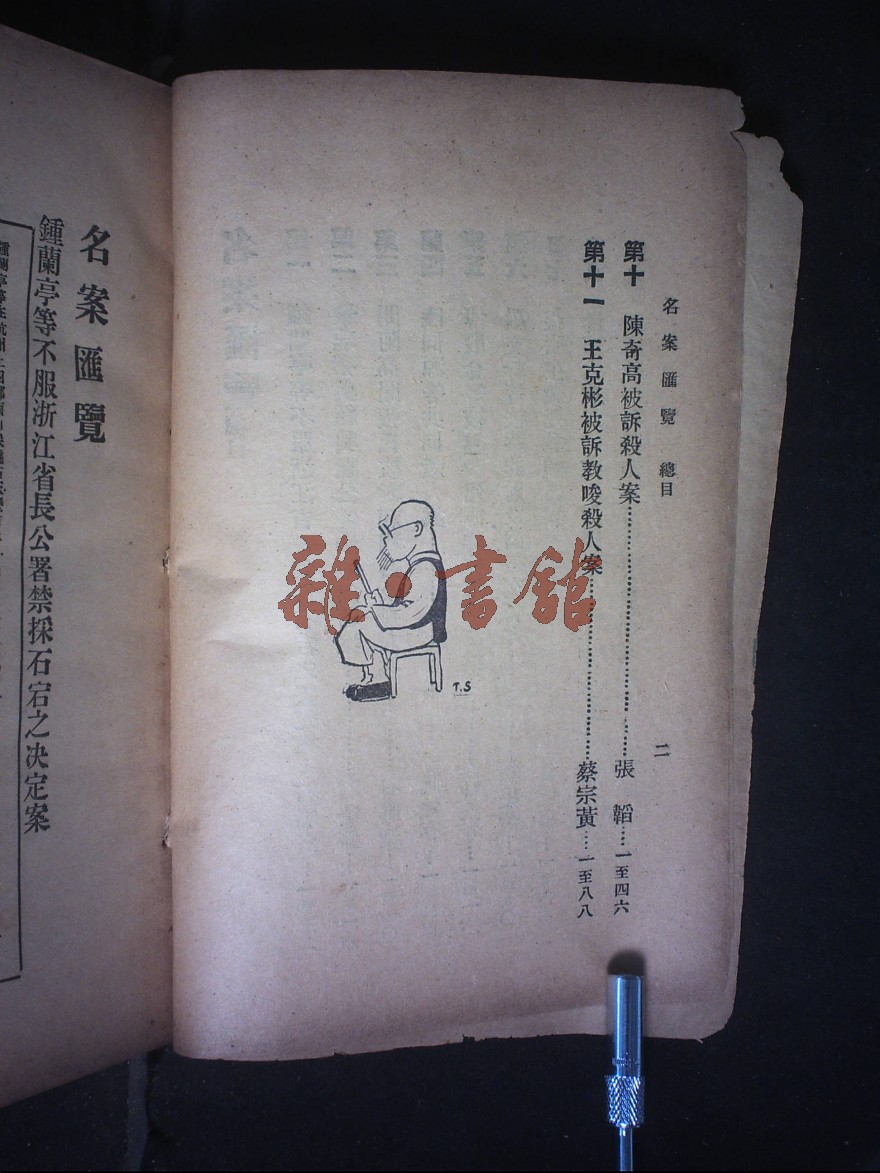 名案匯覽 總目
二
第十 陳奇高被訴殺人案……張 韜……一至四六
第十一 王克彬被訴教唆殺人案……蔡宗黃……一至八八
T.S
雜·書館
名案匯覽
鍾蘭亭等不服浙江省長公署禁採石宕之决定案